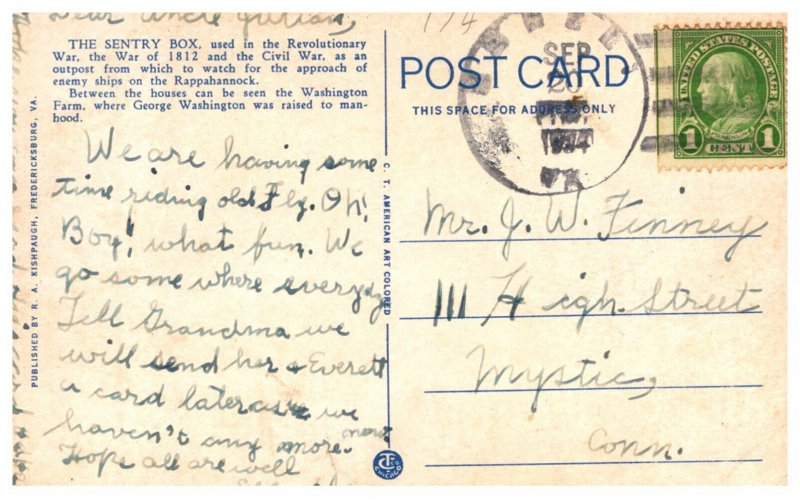 Dear Uncle
THE SENTRY BOX, used in the Revolutionary
War, the War of 1812 and the Civil War, as an
outpost from which to watch for the approach of
enemy ships on the Rappahannock.
Between the houses can be seen the Washington
Farm, where George Washington was raised to man-
hood.
We are having some
time riding old Fly. Oh!
Boy! what fun. We
go some where everyday
Tell Grandma we
will send her & Everett
a card later as we
haven't any more
money
Hope all are well
PUBLISHED BY R. A. KISHPAUGH, FREDERICKSBURG, VA.
C. T. AMERICAN ART COLORED
174
POST CARD
THIS SPACE FOR ADDRESS ONLY
SEP
20
1934
VA
UNITED STATES POSTAGE
FRANKLIN
1 CENT 1
Mr. J. W. Finney
111 High Street
Mystic,
Conn.
CHICAGO